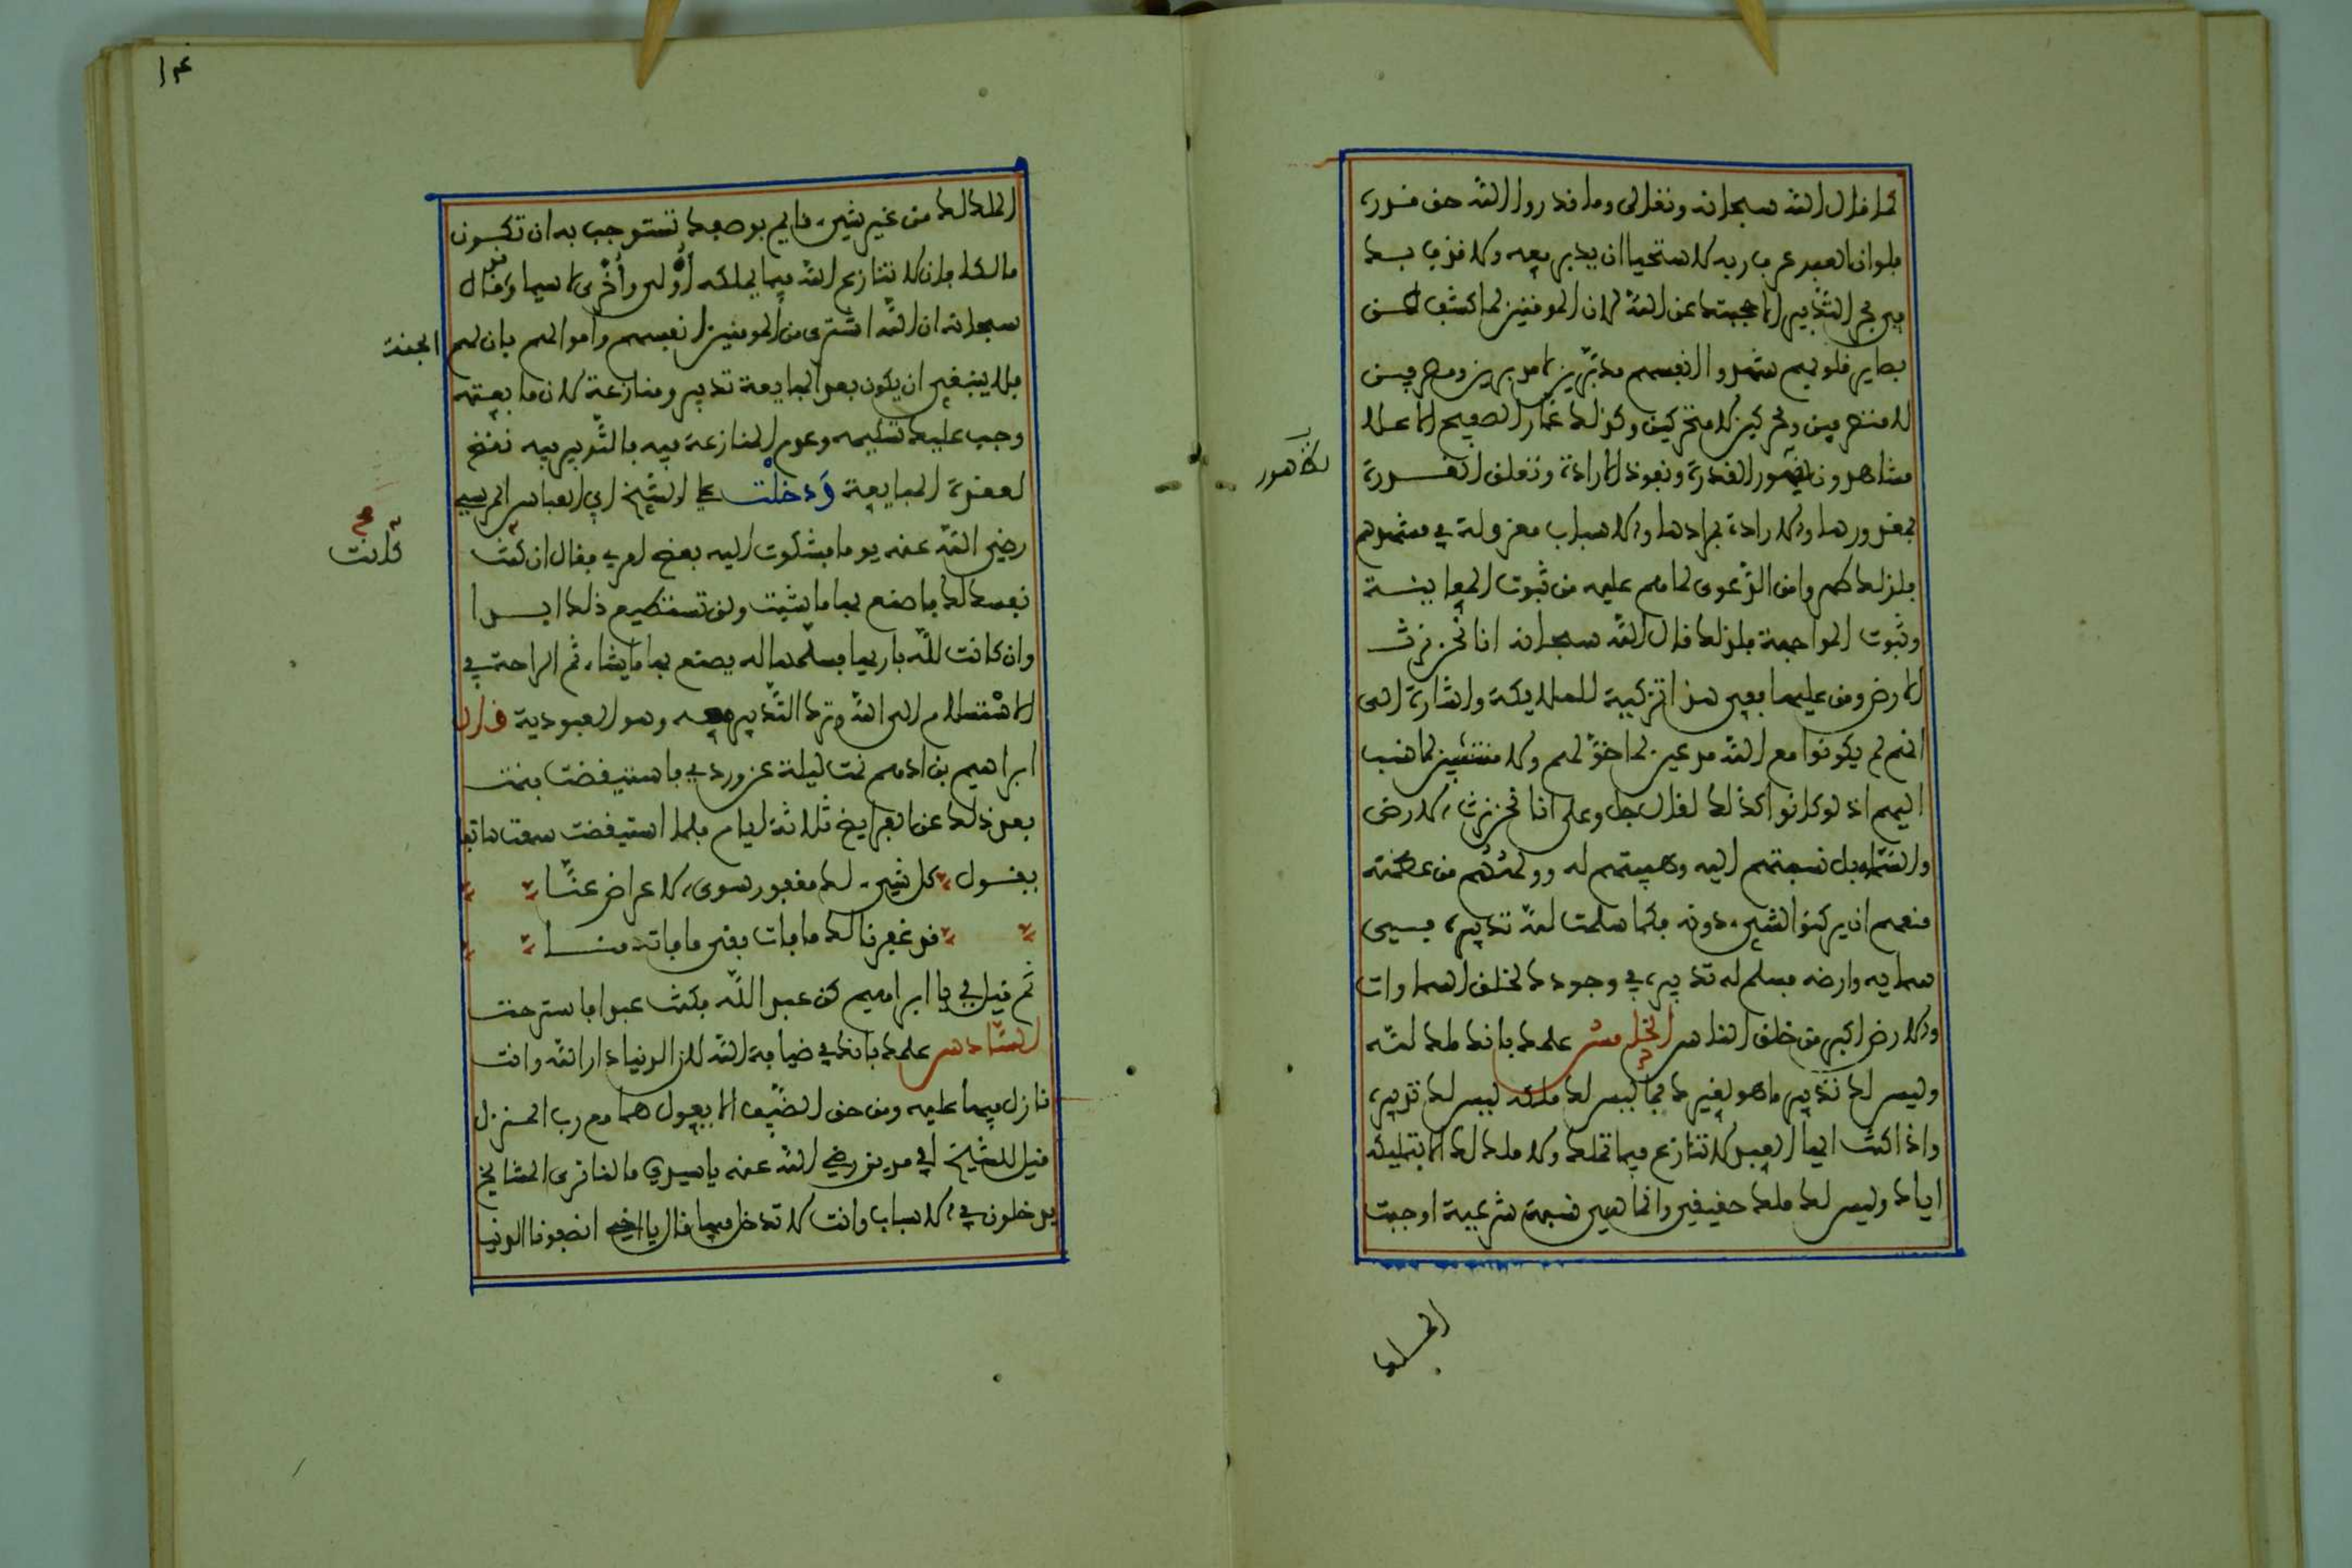 كما قال الله سبحانه وتعالى وما قدروا الله حق قدره
فلو ان العبد عرف ربه لاستحيا ان يدبر معه ولا قذف بك
في بحر التدبير الا حجبتك عن الله لان الموقنين لما كشف عن
بصاير قلوبهم شهدوا انفسهم مدبرين لا مدبرين ومصرفين
لا متصرفين ومحركين لا متحركين وكذلك عمار الصفيح الاعلا
مشاهدون لظهور القدرة ونفوذ الارادة وتعلق القدرة
بمقدورها والارادة بمرادها والاسباب معزولة في مشهدهم
فلذلك طهروا من الدعوى لما هم عليه من ثبوت المعاينة
وثبوت المواجهة فلذلك قال الله سبحانه انا نحن نرث
الارض ومن عليها ففي هذا تزكية للملايكة واشارة الى
انهم لم يكونوا مع الله مدعين لما خولهم ولا منتسبين لما نسب
اليهم اذ لو كانوا كذلك لقال جل وعلى انا نحن نرث الارض
والسماء بل نسبتهم اليه وهيبتهم له وولههم من عظمته
منعهم ان يركنوا لشيء دونه فكما سلمت لله تدبيره في
سمايه وارضه فسلم له تدبيره في وجودك لخلق السماوات
والارض اكبر من خلق الناس الخامس علمك بانك ملك لله
وليس لك تدبير ما هو لغيرك فما ليس لك ملكه ليس لك تدبيره
واذا كنت ايها العبد لا تنازع فيما تملك ولا ملك لك الا بتمليكه
اياك وليس لك ملك حقيقي وانما هي نسبة شرعية اوجبت
لظهور
الملك
الملك لك من غير شيء قايم بوصفك تستوجب به ان تكون
مالكا فان لا تنازع الله فيما يملكه أولى وأحرى لا سيما وقد قال
سبحانه ان الله اشترى من المومنين انفسهم واموالهم بان لهم الجنة
فلا ينبغي ان يكون بعد المبايعة تدبير ومنازعة لان ما بعته
وجب عليك تسليمه وعدم المنازعة فيه بالتدبير فيه نقض
لعقدة المبايعة وَدخلْت على الشيخ ابي العباس المرسي
رضي الله عنه يوما فشكوت اليه بعض امري فقال ان كانت
نفسك لك فاصنع بها ما شيت ولن تستطيع ذلك ابدا
وان كانت للّه باريها فسلّمها له يصنع بها ما يشاء ثم الراحة في
الاستسلام الى الله وترك التدبير معه وهو العبودية قال
ابراهيم بن ادهم نمت ليلة عن وردي فاستيقضت فنمت
بعد ذلك عن الفرايض ثلاثة ايام فلما استيقضت سمعت هاتفا
يقول كل شيء لك مغفور سوى الاعراض عنّا
قد غفرنا لك ما فات بقي ما فات منا
ثم قيل لي يا ابراهيم كن عبد اللّه فكنت عبدا فاسترحت
السادس علمك بانك في ضيافة الله لان الدنيا دار الله وانت
نازل فيها عليه ومن حق الضيف الا يعول هما مع رب المنزل
قيل للشيخ ابي مدين رضي الله عنه يا سيدي ما لنا نرى المشايخ
يدخلون في الاسباب وانت لا تدخل فيها قال يا اخي انصفونا الدنيا